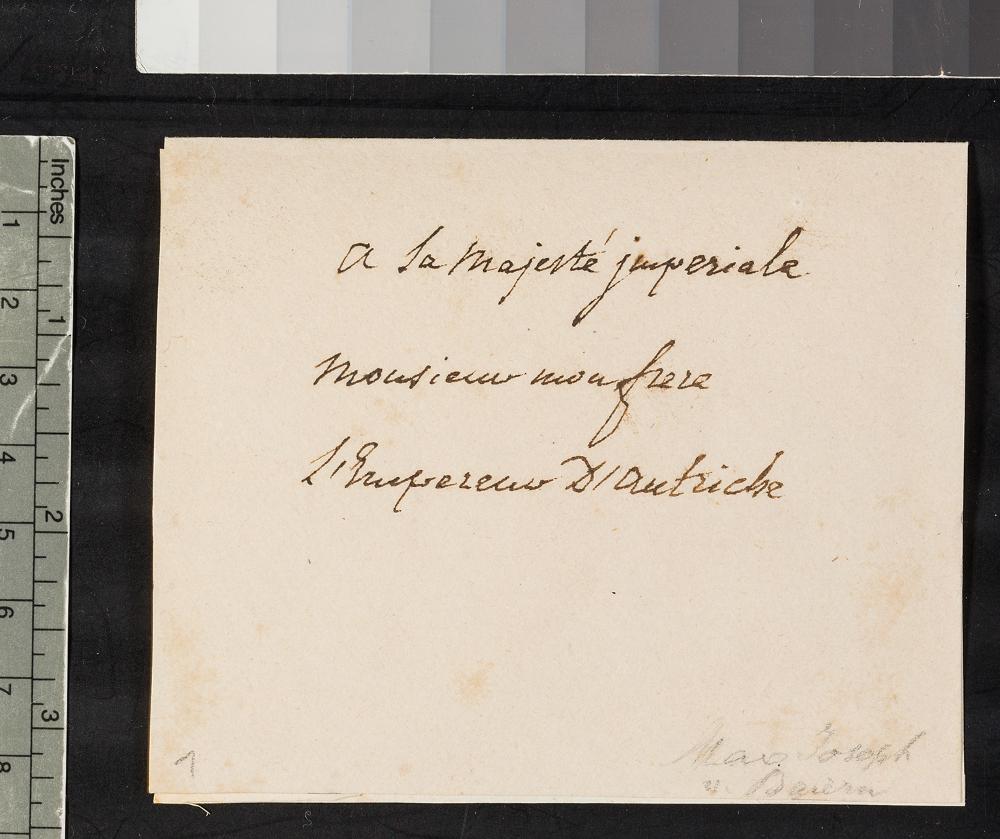 a Sa Majesté jmperiale
Monsieur mon frere
L'Empereur D'autriche
1
Max Joseph
v. Baiern
Inches
1
2
3
1
2
3
4
5
6
7
8